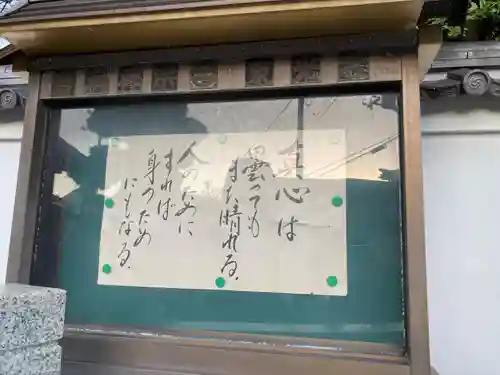 真心は
曇っても
また晴れる
人のために
すれば
身のため
にもなる。